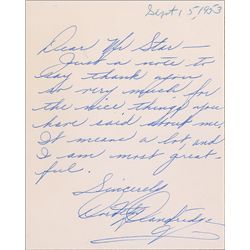 Sept 15, 1953
Dear Mr Star —
Just a note to
say thank you
so very much for
the nice things you
have said about me.
It means a lot, and
I am most grate-
ful.
Sincerely
Dorothy Dandridge